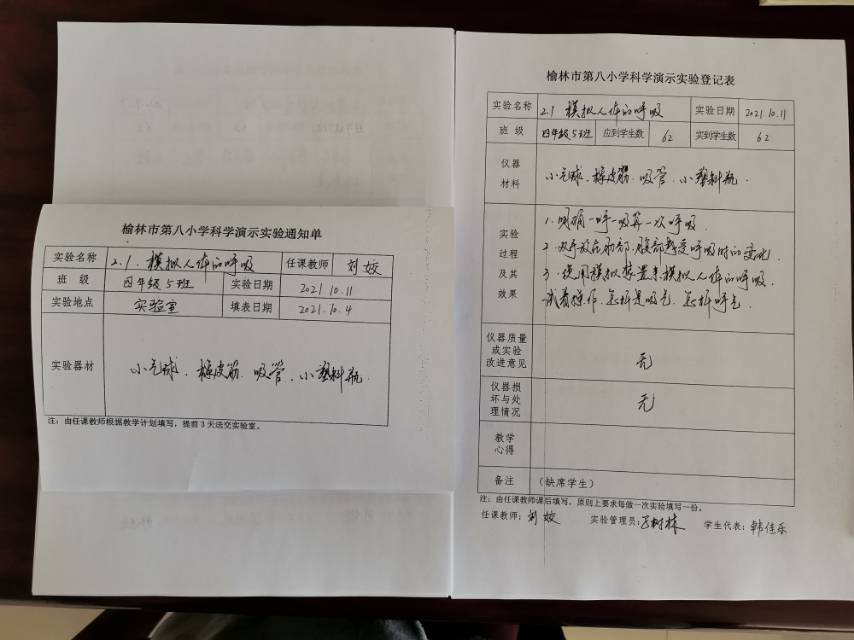 榆林市第八小学科学演示实验通知单
实验名称 2.1. 模拟人体的呼吸 任课教师 刘姣
班 级 四年级5班 实验日期 2021.10.11
实验地点 实验室 填表日期 2021.10.4
实验器材 小气球、橡皮筋、吸管、小塑料瓶.
注：由任课教师根据教学计划填写，提前3天送交实验室。
榆林市第八小学科学演示实验登记表
实验名称 2.1 模拟人体的呼吸 实验日期 2021.10.11
班 级 四年级5班 应到学生数 62 实到学生数 62
仪器
材料
小气球、橡皮筋、吸管、小塑料瓶.
实验
过程
及其
效果
1. 明确一呼一吸算一次呼吸.
2. 双手放在肋部、腹部感受呼吸时的变化.
3. 使用模拟装置来模拟人体的呼吸.
试着操作.怎样是吸气.怎样呼气.
仪器质量
或实验
改进意见
无
仪器损
坏与处
理情况
无
教学
心得
备注 （缺席学生）
注：由任课教师课后填写，原则上要求每做一次实验填写一份。
任课教师：刘姣 实验管理员： 树林 学生代表：韩佳乐